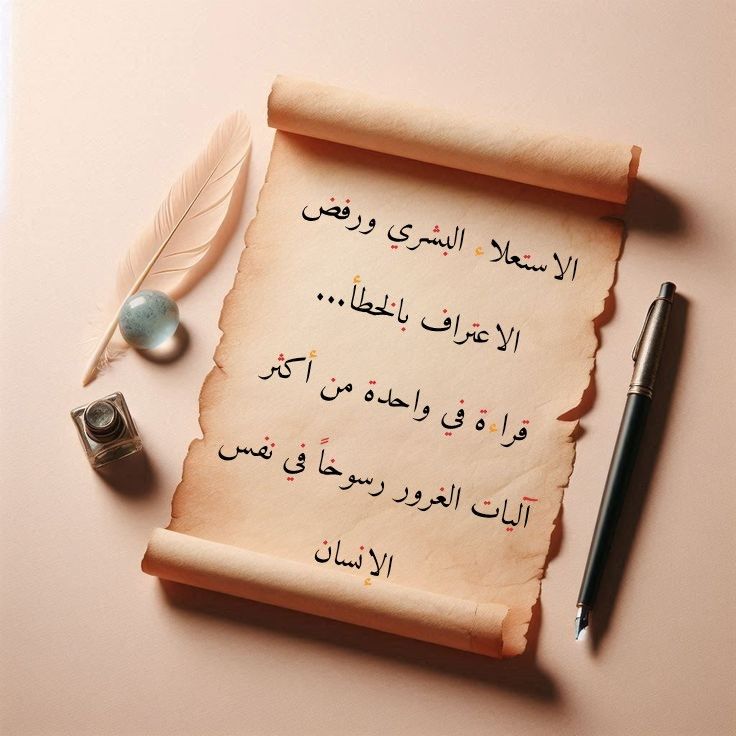 الاستعلاء البشري ورفض
الاعتراف بالخطأ...
قراءة في واحدة من أكثر
آليات الغرور رسوخاً في نفس
الإنسان